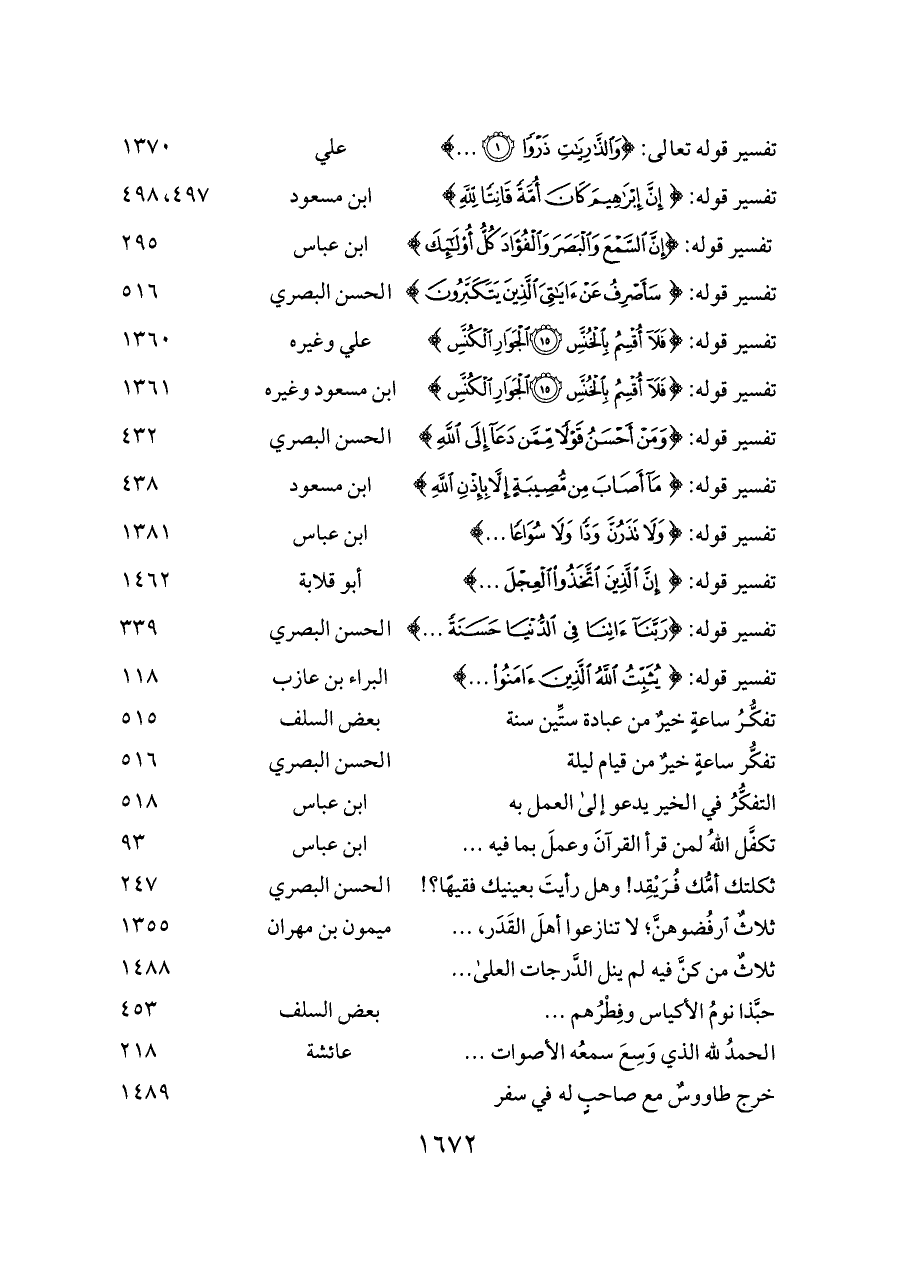 تفسير قوله تعالى: ﴿وَٱلذَّٰرِيَٰتِ ذَرْوًا ۝١ ...﴾ علي ١٣٧٠
تفسير قوله: ﴿ إِنَّ إِبْرَٰهِيمَ كَانَ أُمَّةً قَانِتًا لِّلَّهِ ﴾ ابن مسعود ٤٩٧، ٤٩٨
تفسير قوله: ﴿إِنَّ ٱلسَّمْعَ وَٱلْبَصَرَ وَٱلْفُؤَادَ كُلُّ أُو۟لَٰٓئِكَ ﴾ ابن عباس ٢٩٥
تفسير قوله: ﴿ سَأَصْرِفُ عَنْ ءَايَٰتِىَ ٱلَّذِينَ يَتَكَبَّرُونَ ﴾ الحسن البصري ٥١٦
تفسير قوله: ﴿فَلَآ أُقْسِمُ بِٱلْخُنَّسِ ۝١٥ ٱلْجَوَارِ ٱلْكُنَّسِ ﴾ علي وغيره ١٣٦٠
تفسير قوله: ﴿فَلَآ أُقْسِمُ بِٱلْخُنَّسِ ۝١٥ ٱلْجَوَارِ ٱلْكُنَّسِ ﴾ ابن مسعود وغيره ١٣٦١
تفسير قوله: ﴿وَمَنْ أَحْسَنُ قَوْلًا مِّمَّن دَعَآ إِلَى ٱللَّهِ ﴾ الحسن البصري ٤٣٢
تفسير قوله: ﴿ مَآ أَصَابَ مِن مُّصِيبَةٍ إِلَّا بِإِذْنِ ٱللَّهِ ﴾ ابن مسعود ٤٣٨
تفسير قوله: ﴿ وَلَا تَذَرُنَّ وَدًّا وَلَا سُوَاعًا ...﴾ ابن عباس ١٣٨١
تفسير قوله: ﴿ إِنَّ ٱلَّذِينَ ٱتَّخَذُوا۟ ٱلْعِجْلَ ...﴾ أبو قلابة ١٤٦٢
تفسير قوله: ﴿رَبَّنَآ ءَاتِنَا فِى ٱلدُّنْيَا حَسَنَةً ...﴾ الحسن البصري ٣٣٩
تفسير قوله: ﴿ يُثَبِّتُ ٱللَّهُ ٱلَّذِينَ ءَامَنُوا۟ ...﴾ البراء بن عازب ١١٨
تفكُّرُ ساعةٍ خيرٌ من عبادة ستِّين سنة بعض السلف ٥١٥
تفكُّر ساعةٍ خيرٌ من قيام ليلة الحسن البصري ٥١٦
التفكُّرُ في الخير يدعو إلىٰ العمل به ابن عباس ٥١٨
تكفَّل اللهُ لمن قرأ القرآنَ وعملَ بما فيه ... ابن عباس ٩٣
ثكلتك أمُّك فُرَيْقِد! وهل رأيتَ بعينيك فقيهًا؟! الحسن البصري ٢٤٧
ثلاثٌ ٱرفُضوهنَّ؛ لا تنازعوا أهلَ القَدَر، ... ميمون بن مهران ١٣٥٥
ثلاثٌ من كنَّ فيه لم ينل الدَّرجات العلىٰ... ١٤٨٨
حبَّذا نومُ الأكياس وفِطْرُهم ... بعض السلف ٤٥٣
الحمدُ لله الذي وَسِعَ سمعُه الأصوات ... عائشة ٢١٨
خرج طاووسٌ مع صاحبٍ له في سفر ١٤٨٩
١٦٧٢